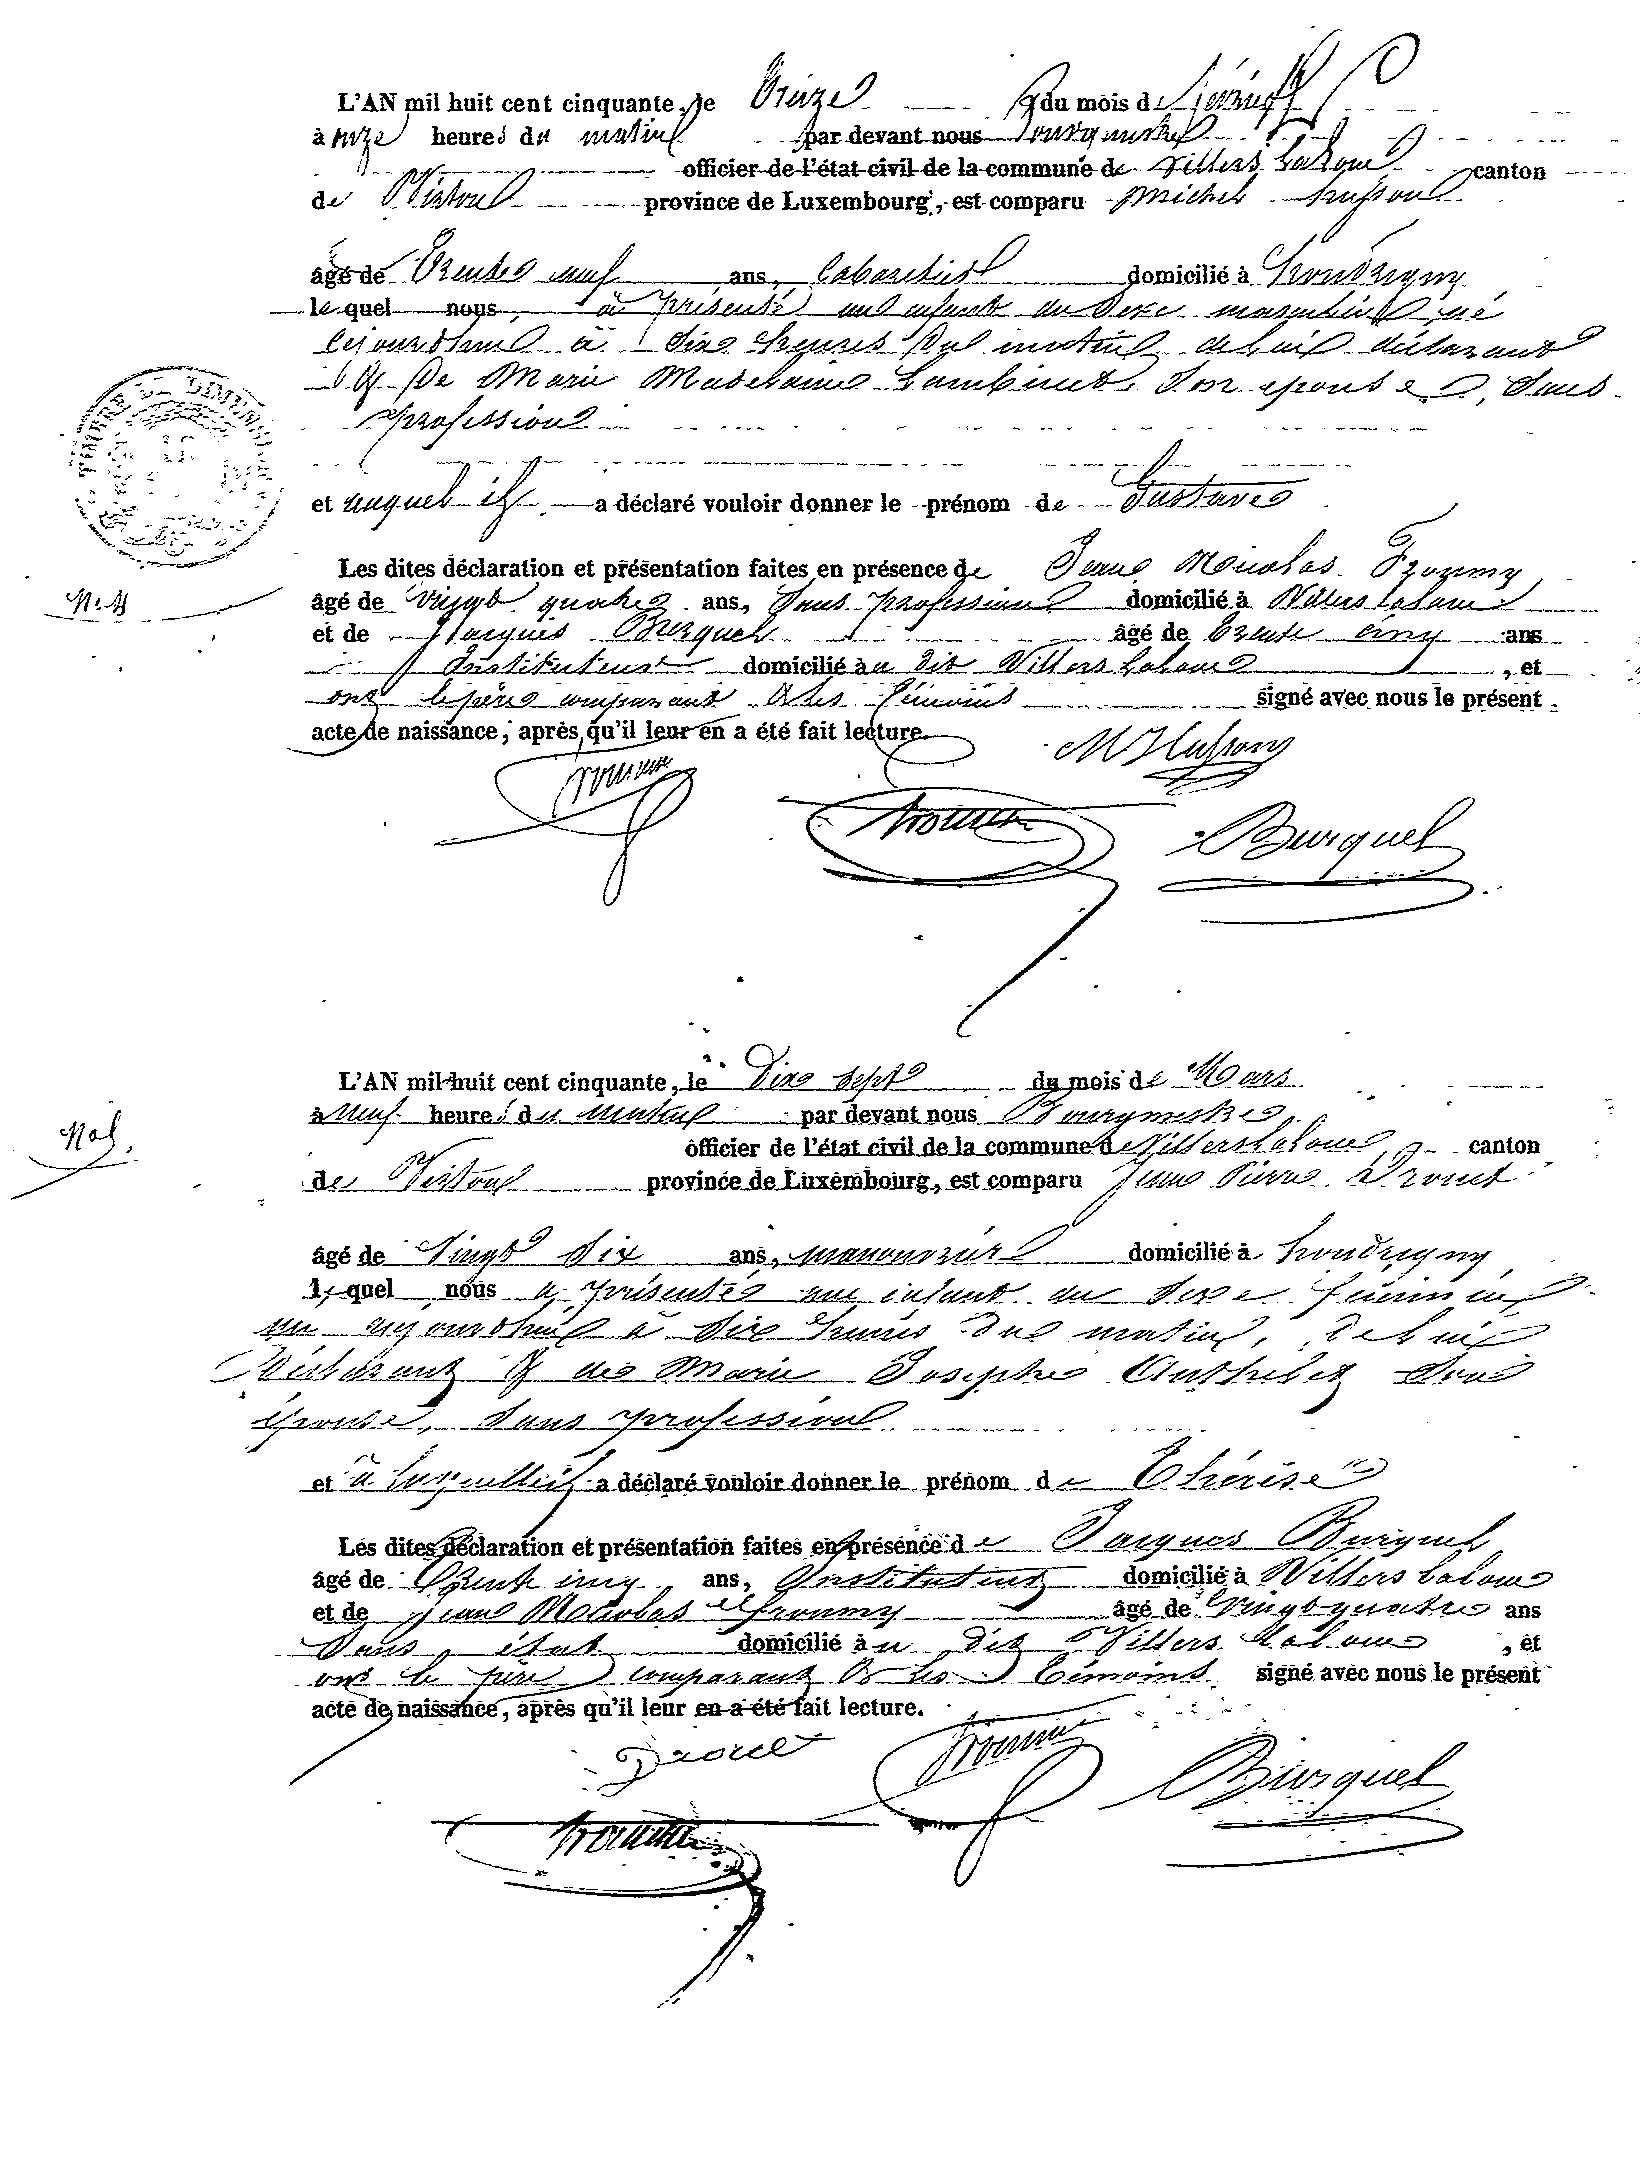 L'AN mil huit cent cinquante, le treize du mois de février
à onze heures du matin par devant nous Bourgmestre
officier de l'état civil de la commune de Villers laLoue canton
de Virton province de Luxembourg, est comparu Michel husson
âgé de trente neuf ans, Cabaretier domicilié à houdrigny
lequel nous, a présenté un enfant du sexe masculin, né
cejourdhui à dix heures du matin, de lui déclarant
& De Marie Madelaine Lambinet, son epouse, sans
profession
TIMBRE DE DIMENSION
et auquel il a déclaré vouloir donner le prénom de Gustave
Les dites déclaration et présentation faites en présence de Jean Nicolas Froumy
N. 4
âgé de vingt quatre ans, sans profession domicilié à Villers laLoue
et de Jacques Burquel âgé de trente cinq ans
Instituteur domicilié au dit Villers laLoue, et
ont le père comparant & les témoins signé avec nous le présent
acte de naissance, après qu'il leur en a été fait lecture.
M Husson
Burquel
L'AN mil huit cent cinquante, le Dix sept du mois de Mars
à neuf heures du matin par devant nous Bourgmestre
N°5.
officier de l'état civil de la commune de Villers laLoue canton
de Virton province de Luxembourg, est comparu Jean Pierre
âgé de vingt six ans, manouvrier domicilié à houdrigny
lequel nous a présenté un enfant du sexe féminin
né cejourdhui à dix heures du matin, de lui
déclarant & de Marie Josephe son
épouse, sans profession
et à laquelle il a déclaré vouloir donner le prénom de Thérèse
Les dites déclaration et présentation faites en présence de Jacques Burquel
âgé de trente cinq ans, Instituteur domicilié à Villers laLoue
et de Jean Nicolas Froumy âgé de vingt quatre ans
sans état domicilié au dit Villers LaLoue, et
ont le père comparant & les témoins signé avec nous le présent
acte de naissance, après qu'il leur en a été fait lecture.
Burquel